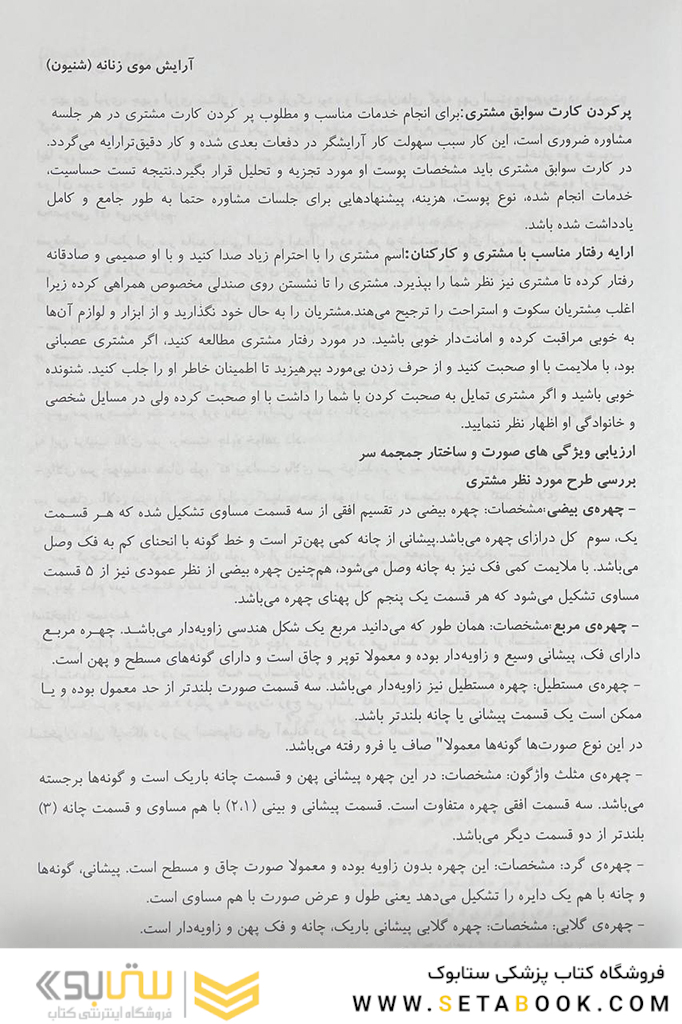 آرایش موی زنانه (شنیون)
پرکردن کارت سوابق مشتری:برای انجام خدمات مناسب و مطلوب پر کردن کارت مشتری در هر جلسه
مشاوره ضروری است، این کار سبب سهولت کار آرایشگر در دفعات بعدی شده و کار دقیق‌ترارایه می‌گردد.
در کارت سوابق مشتری باید مشخصات پوست او مورد تجزیه و تحلیل قرار بگیرد.نتیجه تست حساسیت،
خدمات انجام شده، نوع پوست، هزینه، پیشنهادهایی برای جلسات مشاوره حتما به طور جامع و کامل
یادداشت شده باشد.
ارایه رفتار مناسب با مشتری و کارکنان:اسم مشتری را با احترام زیاد صدا کنید و با او صمیمی و صادقانه
رفتار کرده تا مشتری نیز نظر شما را بپذیرد. مشتری را تا نشستن روی صندلی مخصوص همراهی کرده زیرا
اغلب مشتریان سکوت و استراحت را ترجیح می‌هند.مشتریان را به حال خود نگذارید و از ابزار و لوازم آن‌ها
به خوبی مراقبت کرده و امانت‌دار خوبی باشید. در مورد رفتار مشتری مطالعه کنید، اگر مشتری عصبانی
بود، با ملایمت با او صحبت کنید و از حرف زدن بی‌مورد بپرهیزید تا اطمینان خاطر او را جلب کنید. شنونده
خوبی باشید و اگر مشتری تمایل به صحبت کردن با شما را داشت با او صحبت کرده ولی در مسایل شخصی
و خانوادگی او اظهار نظر ننمایید.
ارزیابی ویژگی های صورت و ساختار جمجمه سر
بررسی طرح مورد نظر مشتری
- چهره‌ی بیضی:مشخصات: چهره بیضی در تقسیم افقی از سه قسمت مساوی تشکیل شده که هر قسمت
یک، سوم کل درازای چهره می‌باشد.پیشانی از چانه کمی پهن‌تر است و خط گونه با انحنای کم به فک وصل
می‌باشد. با ملایمت کمی فک نیز به چانه وصل می‌شود، هم‌چنین چهره بیضی از نظر عمودی نیز از ۵ قسمت
مساوی تشکیل می‌شود که هر قسمت یک پنجم کل پهنای چهره می‌باشد.
- چهره‌ی مربع:مشخصات: همان طور که می‌دانید مربع یک شکل هندسی زاویه‌دار می‌باشد. چهره مربع
دارای فک، پیشانی وسیع و زاویه‌دار بوده و معمولا توپر و چاق است و دارای گونه‌های مسطح و پهن است.
- چهره‌ی مستطیل: چهره مستطیل نیز زاویه‌دار می‌باشد. سه قسمت صورت بلندتر از حد معمول بوده و یا
ممکن است یک قسمت پیشانی یا چانه بلندتر باشد.
در این نوع صورت‌ها گونه‌ها معمولا" صاف یا فرو رفته می‌باشد.
- چهره‌ی مثلث واژگون: مشخصات: در این چهره پیشانی پهن و قسمت چانه باریک است و گونه‌ها برجسته
می‌باشد. سه قسمت افقی چهره متفاوت است. قسمت پیشانی و بینی (۲،۱) با هم مساوی و قسمت چانه (۳)
بلندتر از دو قسمت دیگر می‌باشد.
- چهره‌ی گرد: مشخصات: این چهره بدون زاویه بوده و معمولا صورت چاق و مسطح است. پیشانی، گونه‌ها
و چانه با هم یک دایره را تشکیل می‌دهد یعنی طول و عرض صورت با هم مساوی است.
- چهره‌ی گلابی: مشخصات: چهره گلابی پیشانی باریک، چانه و فک پهن و زاویه‌دار است.
فروشگاه کتاب پزشکی ستابوک
WWW.SETABOOK.COM
ستابوک
فروشگاه اینترنتی کتاب